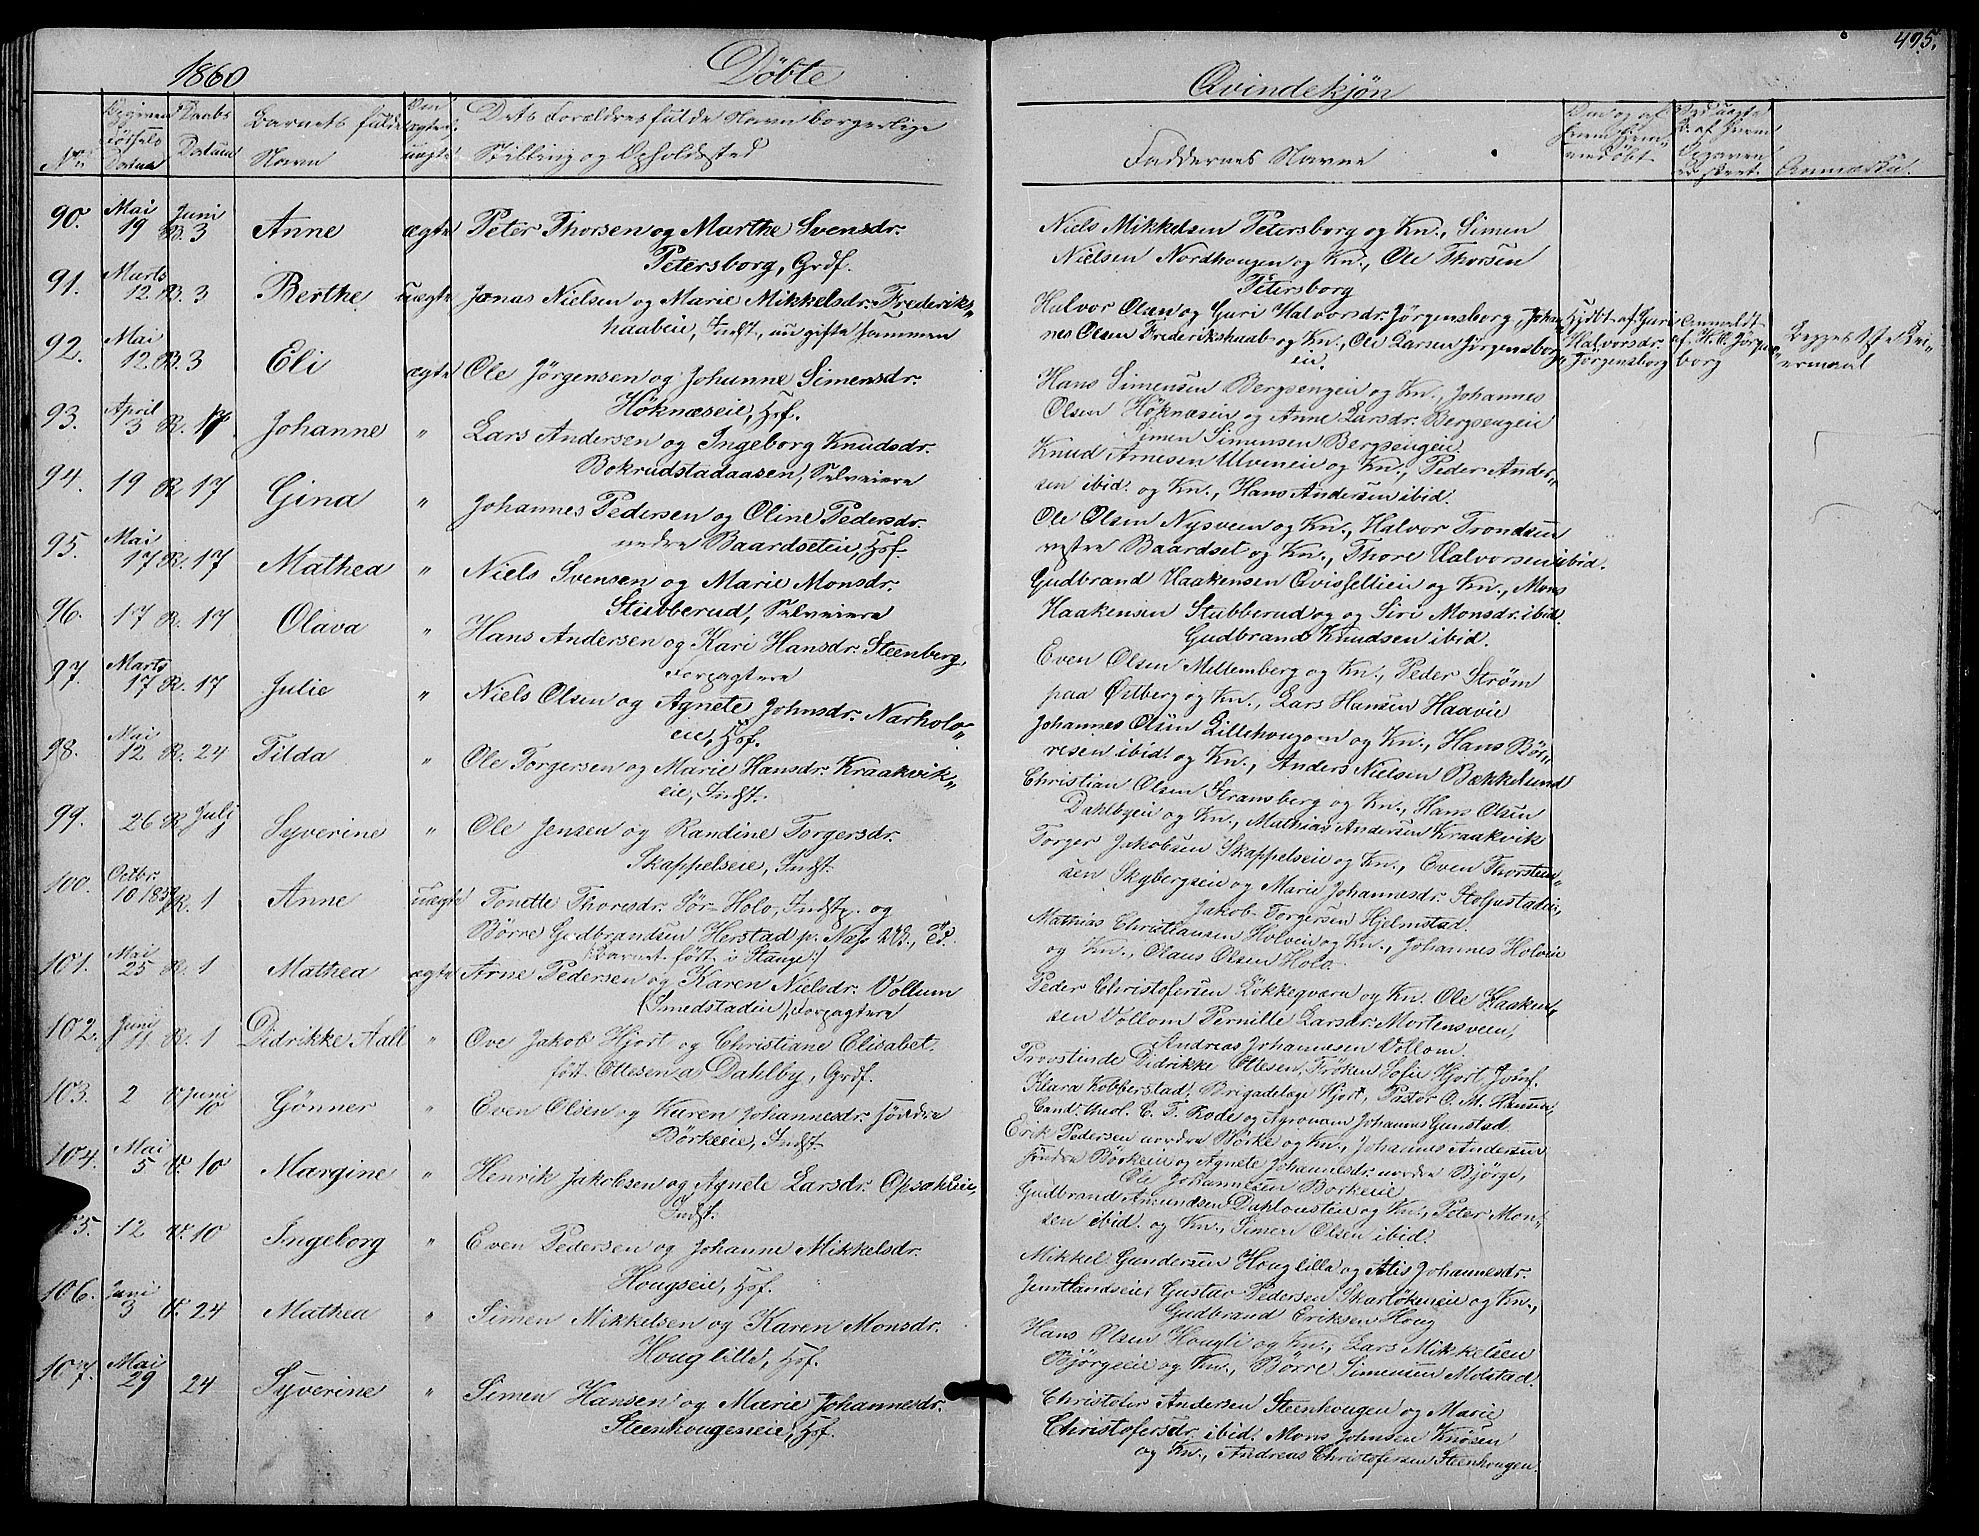 1860 Döbte
No. Fødsels Datum Daabs Datum Barnets fulde Navn ægte uægte Dets Forældres fulde Navn borgerlige Stilling og Opholdssted
90. Mai 19 Juni R. 3 Anne ægte Peter Thorsen og Marthe Svensdr.
Petersborg, Grdf.
91. Marts 12 R. 3 Berthe uægte Jonas Nielsen og Marie Mikkelsdr. Frederiks-
haabeie, Indst., ugifte sammen
92. Mai 12 R. 3 Eli ægte Ole Jörgensen og Johanne Simensdr.
Höknæseie, Hsf.
93. April 3 R. 17 Johanne " Lars Andersen og Ingeborg Knudsdr.
Bokrudstadaasen, Selveiere
94. 19 R 17 Gina " Johannes Pedersen og Oline Pedersdr.
nedre Baardseteie, Hsf.
95. Mai 17 R. 17 Mathea " Niels Svensen og Marie Monsdr.
Stubberud, Selveiere
96. 17 R. 17 Olava " Hans Andersen og Kari Hansdr. Steenberg,
Forpagtere
97. Marts 17 R. 17 Julie " Niels Olsen og Agnete Johnsdr. Narholo-
eie, Hsf.
98. Mai 12 R. 24 Tilda " Ole Torgersen og Marie Hansdr. Kraakvik-
eie, Indst.
99. 26 R Julj Syverine " Ole Jensen og Randine Torgersdr.
Skappelseie, Indst.
100. Octbr. 10 1859 R. 1 Anne uægte Tonette Thoresdr. Sör-Holo, Indstp. og
Börre Gudbrandsen Herstad p. Næs
(Barnet født i Stange)
101. Mai 25 R. 1 Mathea ægte Arne Pedersen og Karen Nielsdr. Vollum
(Smedstadeie), Forpagtere
102. Juni 11 R. 1 Didrikke Aall " Ove Jakob Hjort og Christiane Elisabet.
født Ottesen a Dahlby, Grdf.
103. 2 V Juni 10 Gönner " Even Olsen og Karen Johannesdr. söndre
Börkeeie, Indst.
104. Mai 5 V. 10 Margine " Henrik Jakobsen og Agnete Larsdr. Opsahleie,
Indst.
12 V. 10 Ingeborg " Even Pedersen og Johanne Mikkelsdr.
Hougseie, Hsf.
106. Juni 3 V. 24 Mathea " Simen Mikkelsen og Karen Monsdr.
Houglille, Hsf.
107. Mai 29 24 Syverine " Simen Hansen og Marie Johannesdr.
Steenhougeneie, Hsf.
495.
Qvindekjön
Faddernes Navne
Niels Mikkelsen Petersborg og Kn., Simen
Nielsen Nordhougen og Kn., Ole Thorsen
Petersborg
Halvor Olsen og Guri Halvorsdr. Jörgensborg, Johan- Hjdbt af Guri Anmeldt
nes Olsen Frederikshaab og Kn., Ole Larsen Jörgensborg- Halvorsdr. af H. O. Jörgens-
ei. Jörgensborg borg
Hans Simensen Bergsengeie og Kn., Johannes
Olsen Höknæseie og Anne Larsdr. Bergsengeie
Simen Simensen Bergsengeie.
Knud Arnesen Ulveneie og Kn., Peder Ander-
sen ibid. og Kn., Hans Andersen ibid.
Ole Olsen Nysveen og Kn., Halvor Trondsen
vestre Baardset og Kn., Thore Halvorsen ibid.
Gudbrand Haakensen Qvisselleie og Kn., Mons
Haakensen Stubberud og og Siri Monsdr. ibid.
Gudbrand Knudsen ibid.
Even Olsen Mellemberg og Kn., Peder Ström
paa Østberg og Kn., Lars Hansen Haavie
Johannes Olsen Lillehougom og Kn., Hans Bör-
resen ibid. og Kn., Anders Nielsen Bækkelund
Christian Olsen Stramsberg og Kn., Hans Olsen
Dahlbyeie og Kn., Mathias Andersen Kraakvik
Torger Jakobsen Skappelseie og Kn., Even Thorsten-
sen Skybergseie og Marie Johannesdr.
Jakob Torgersen Hjelmstad.
Mathias Christiansen Holveie og Kn., Johannes Holveie
og Kn., Olaus Olsen Holo.
Peder Christofersen Lökkeqværn og Kn. Ole Haaken-
sen Vollom Pernille Larsdr. Mortensveen,
Andreas Johannesen Vollom.
Provstinde Didrikke Ottesen, Fröken Sofie Hjort, Jomf.
Klara Kobberstad, Brigadelæge Hjort, Pastor O. M. Hansen,
Cand. theol. C. F. Rode og Agronom Johannes Gunstad
Erik Pedersen nordre Börke og Kn., Johannes Andersen
söndre Börkeeie og Agnete Johannesdr. nordre Bjørge,
Ole Johannesen Borkeeie,
Gudbrand Amundsen Dahlouseie og Kn., Peter Mon-
sen ibid. og Kn., Simen Olsen ibid.
Mikkel Gundersen Houglilla og Alis Johannesdr.
Jemtlandseie, Gustav Pedersen Skarløkeneie og Kn.,
Gudbrand Eriksen Houg
Hans Olsen Hougli og Kn., Lars Mikkelsen
Bjørgeeie og Kn., Borre Simensen Molstad.
Christofer Andersen Steenhougen og Marie
Christofersdr. ibid. Mons Johnsen Knösen
og Kn., Andreas Christofersen Steenhougen.